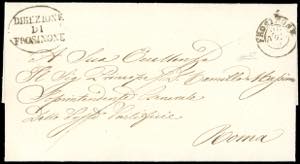 DIREZIONE
DI
FROSINONE
FROSINONE
A Sua Eccellenza
Il Sig Principe D. Camillo Massimo
Soprintendente Generale
delle Poste Pontificie
Roma